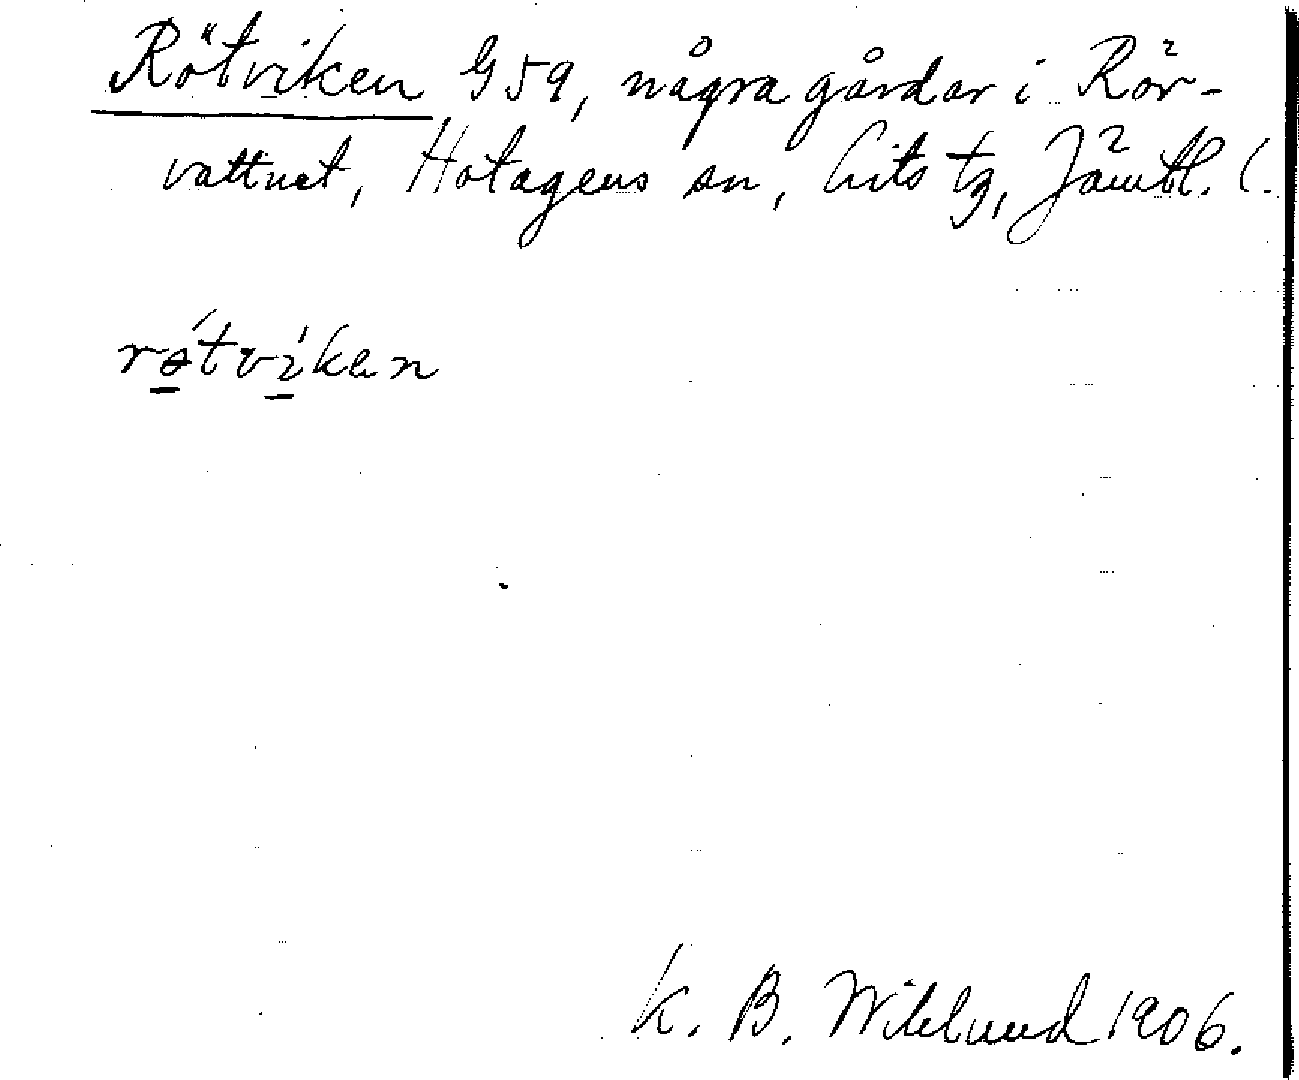 Rötviken G 59, några gårdar i Rör-
vattnet, Hotagens sn, Lits tg, Jämtl. l.
røtvikan
K. B. Wiklund 1906.